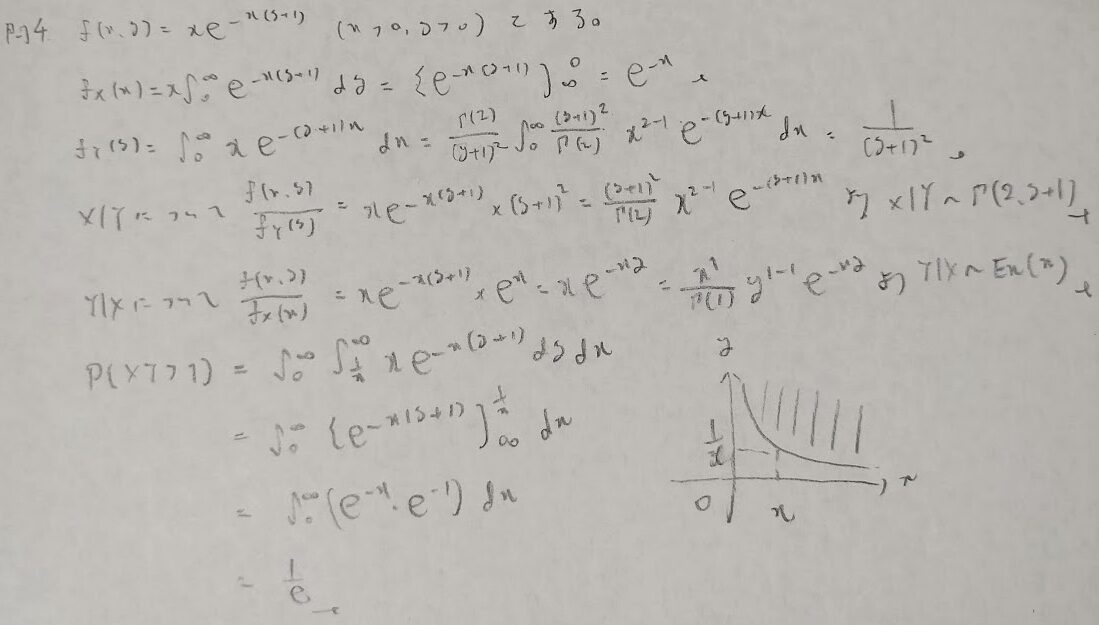 例4 f(x,y) = xe^{-x(y+1)} (x>0, y>0) とする。
f_X(x) = x∫_0^∞ e^{-x(y+1)} dy = {e^{-x(y+1)}]_∞^0 = e^{-x}
f_Y(y) = ∫_0^∞ x e^{-(y+1)x} dx = Γ(2)/(y+1)^2 ∫_0^∞ (y+1)^2/Γ(2) x^{2-1} e^{-(y+1)x} dx = 1/(y+1)^2
X|Y について f(x,y)/f_Y(y) = xe^{-x(y+1)} × (y+1)^2 = (y+1)^2/Γ(2) x^{2-1} e^{-(y+1)x} より X|Y ~ Γ(2, y+1)
Y|X について f(x,y)/f_X(x) = xe^{-x(y+1)} × e^x = xe^{-xy} = x^1/Γ(1) y^{1-1} e^{-xy} より Y|X ~ Ex(x)
P(XY>1) = ∫_0^∞ ∫_{1/x}^∞ x e^{-x(y+1)} dy dx
= ∫_0^∞ {e^{-x(y+1)}]_∞^{1/x} dx
= ∫_0^∞ (e^{-x}・e^{-1}) dx
= 1/e
y
1/x
0 x x